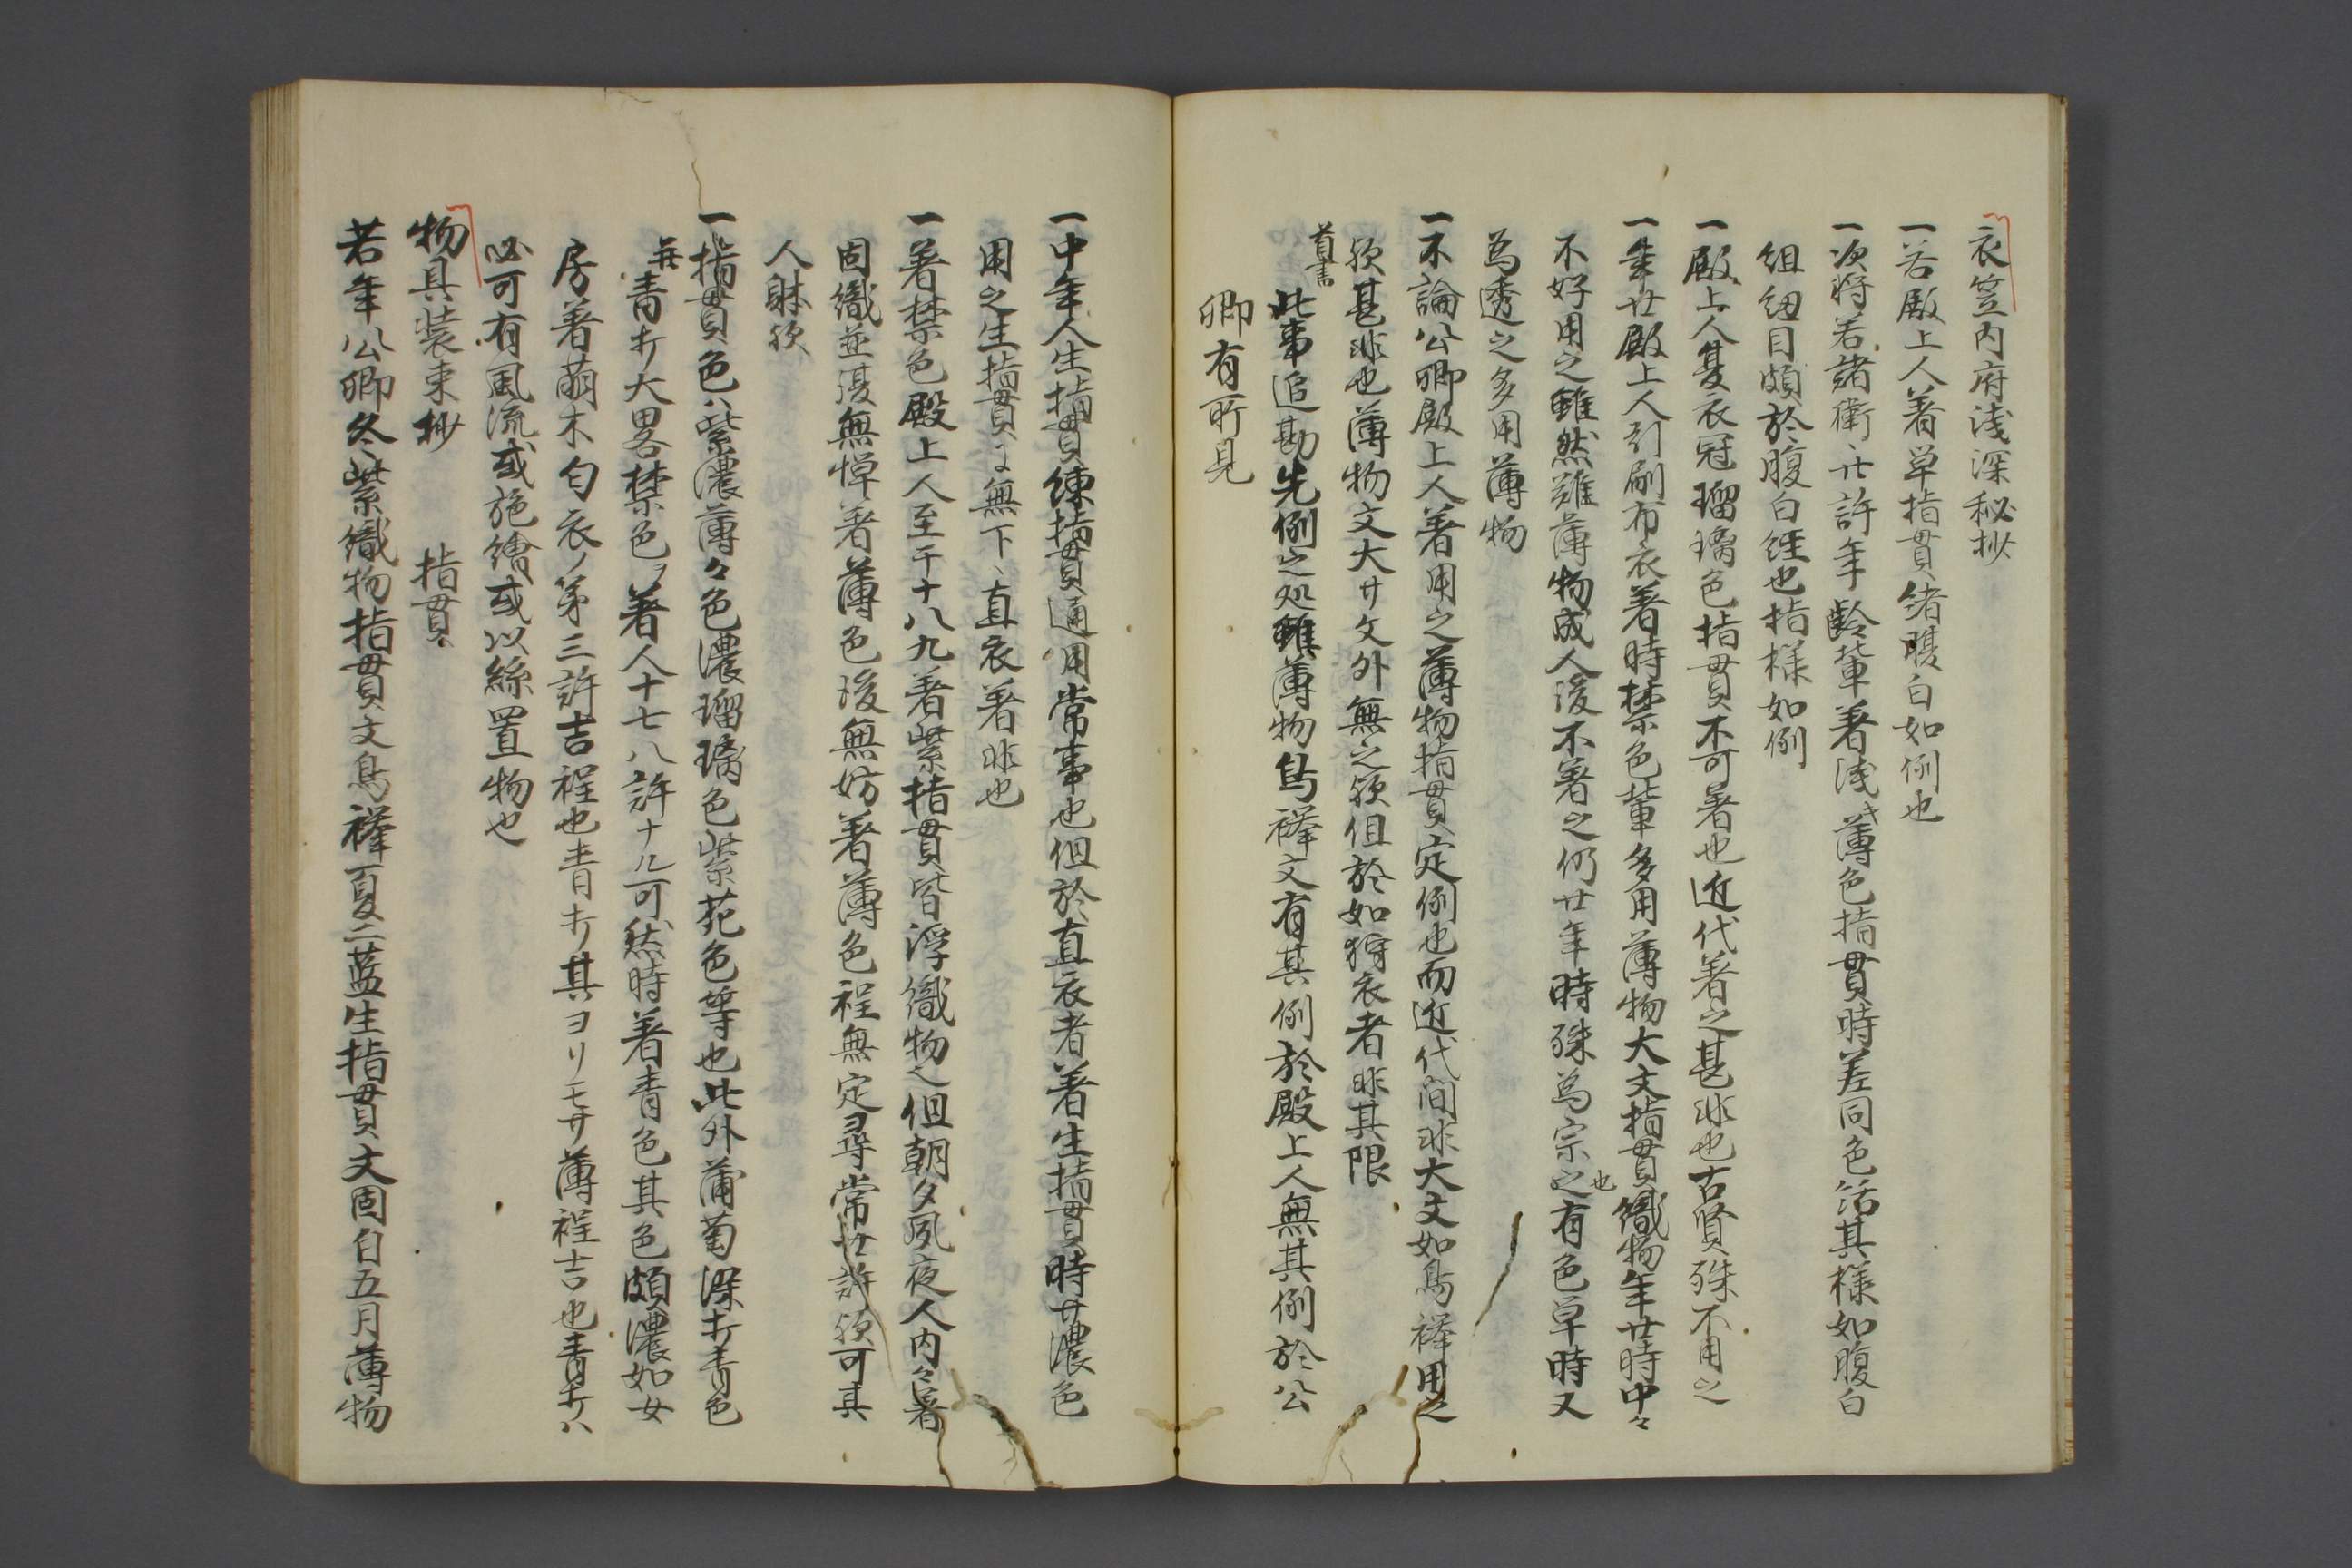 衣笠内府浅深秘抄
一若殿上人着単指貫緒腹白如例也
一次将若諸衛々廿許年齢輩著浅キ薄色指貫時差同色活其様如腹白
組紐目頗於腹白経也指様如例
一殿上人夏衣冠瑠璃色指貫不可著也近代著之甚非也古賢殊不用之
一年廿殿上人引刷布衣著時禁色輩多用薄物大文指貫織物年廿時中々
不好用之雖然雖薄物成人後不著之仍廿年時殊為宗之也有色単時又
為透之多用薄物
一不論公卿殿上人著用之薄物指貫定例也而近代間非大文如鳥襷用之
須甚非也薄物文大サ文外無之須但於如狩衣者非其限
首書
此事追勘先例之処雖薄物鳥襷文有其例於殿上人無其例於公
卿有所見
一中年人生指貫練指貫通用常事也但於直衣者著生指貫時サ濃色
用之生指貫ニ無下ニ直衣著非也
一著禁色殿上人至于十八九著紫指貫皆浮織物之但朝夕夙夜人内々著
固織並後無憚著薄色後無妨著薄色程無定尋常廿許須可其
人躰須
一指貫色ハ紫濃薄々色濃瑠璃色紫苑色等也此外蒲萄深木青色
并青朽大畧禁色ヲ著人十七八許ナル可然時著青色其色頗濃如女
房著萌木匂衣ノ第三許吉程也青朽其ヨリモサ薄程吉也青朽ハ
必可有風流或施繪或以絲置物也
物具装束抄　指貫
若年公卿冬紫織物指貫文鳥襷夏二藍生指貫文固自五月薄物